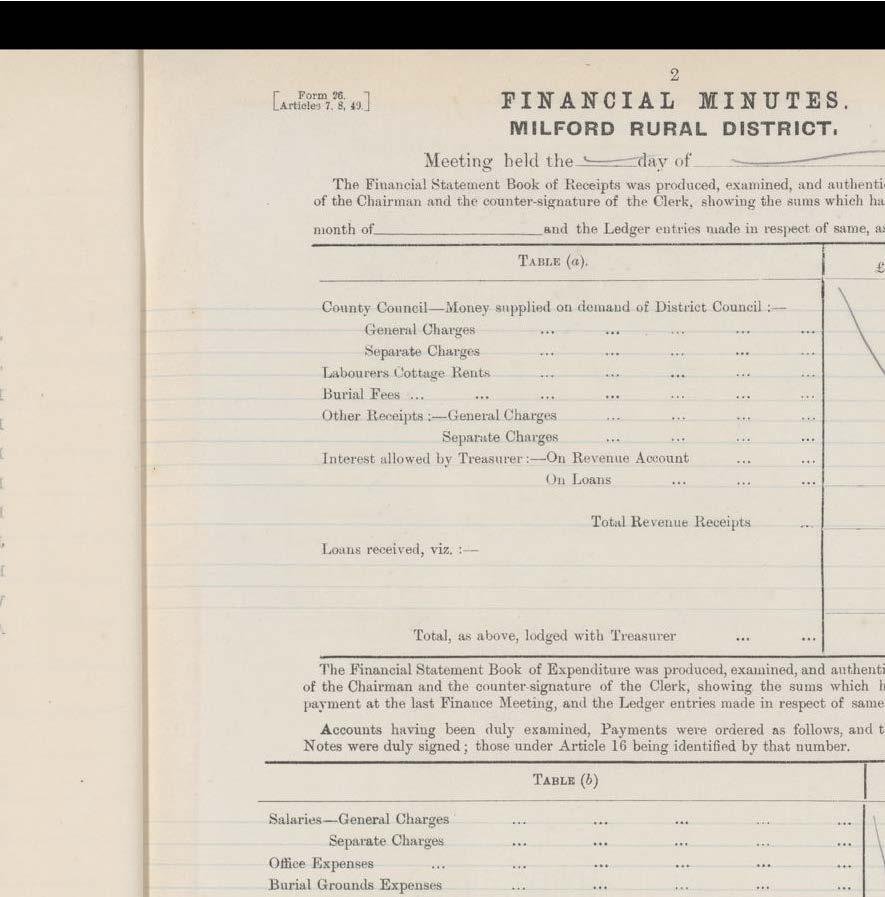 2
Form 26.
Articles 7, 8, 49.
FINANCIAL MINUTES.
MILFORD RURAL DISTRICT.
Meeting held the day of
The Financial Statement Book of Receipts was produced, examined, and authenti
of the Chairman and the counter-signature of the Clerk, showing the sums which ha
month of and the Ledger entries made in respect of same, as
TABLE (a).
£
County Council—Money supplied on demand of District Council :—
General Charges ... ... ... ... ...
Separate Charges ... ... ... ... ...
Labourers Cottage Rents ... ... ... ... ...
Burial Fees ... ... ... ... ... ... ...
Other Receipts :—General Charges ... ... ... ...
Separate Charges ... ... ... ...
Interest allowed by Treasurer :—On Revenue Account ... ...
On Loans ... ... ...
Total Revenue Receipts ...
Loans received, viz. :—
Total, as above, lodged with Treasurer ... ...
The Financial Statement Book of Expenditure was produced, examined, and authenti
of the Chairman and the counter-signature of the Clerk, showing the sums which h
payment at the last Finance Meeting, and the Ledger entries made in respect of same
Accounts having been duly examined, Payments were ordered as follows, and t
Notes were duly signed ; those under Article 16 being identified by that number.
TABLE (b)
Salaries—General Charges ... ... ... ... ...
Separate Charges ... ... ... ... ...
Office Expenses ... ... ... ... ... ...
Burial Grounds Expenses ... ... ... ... ...